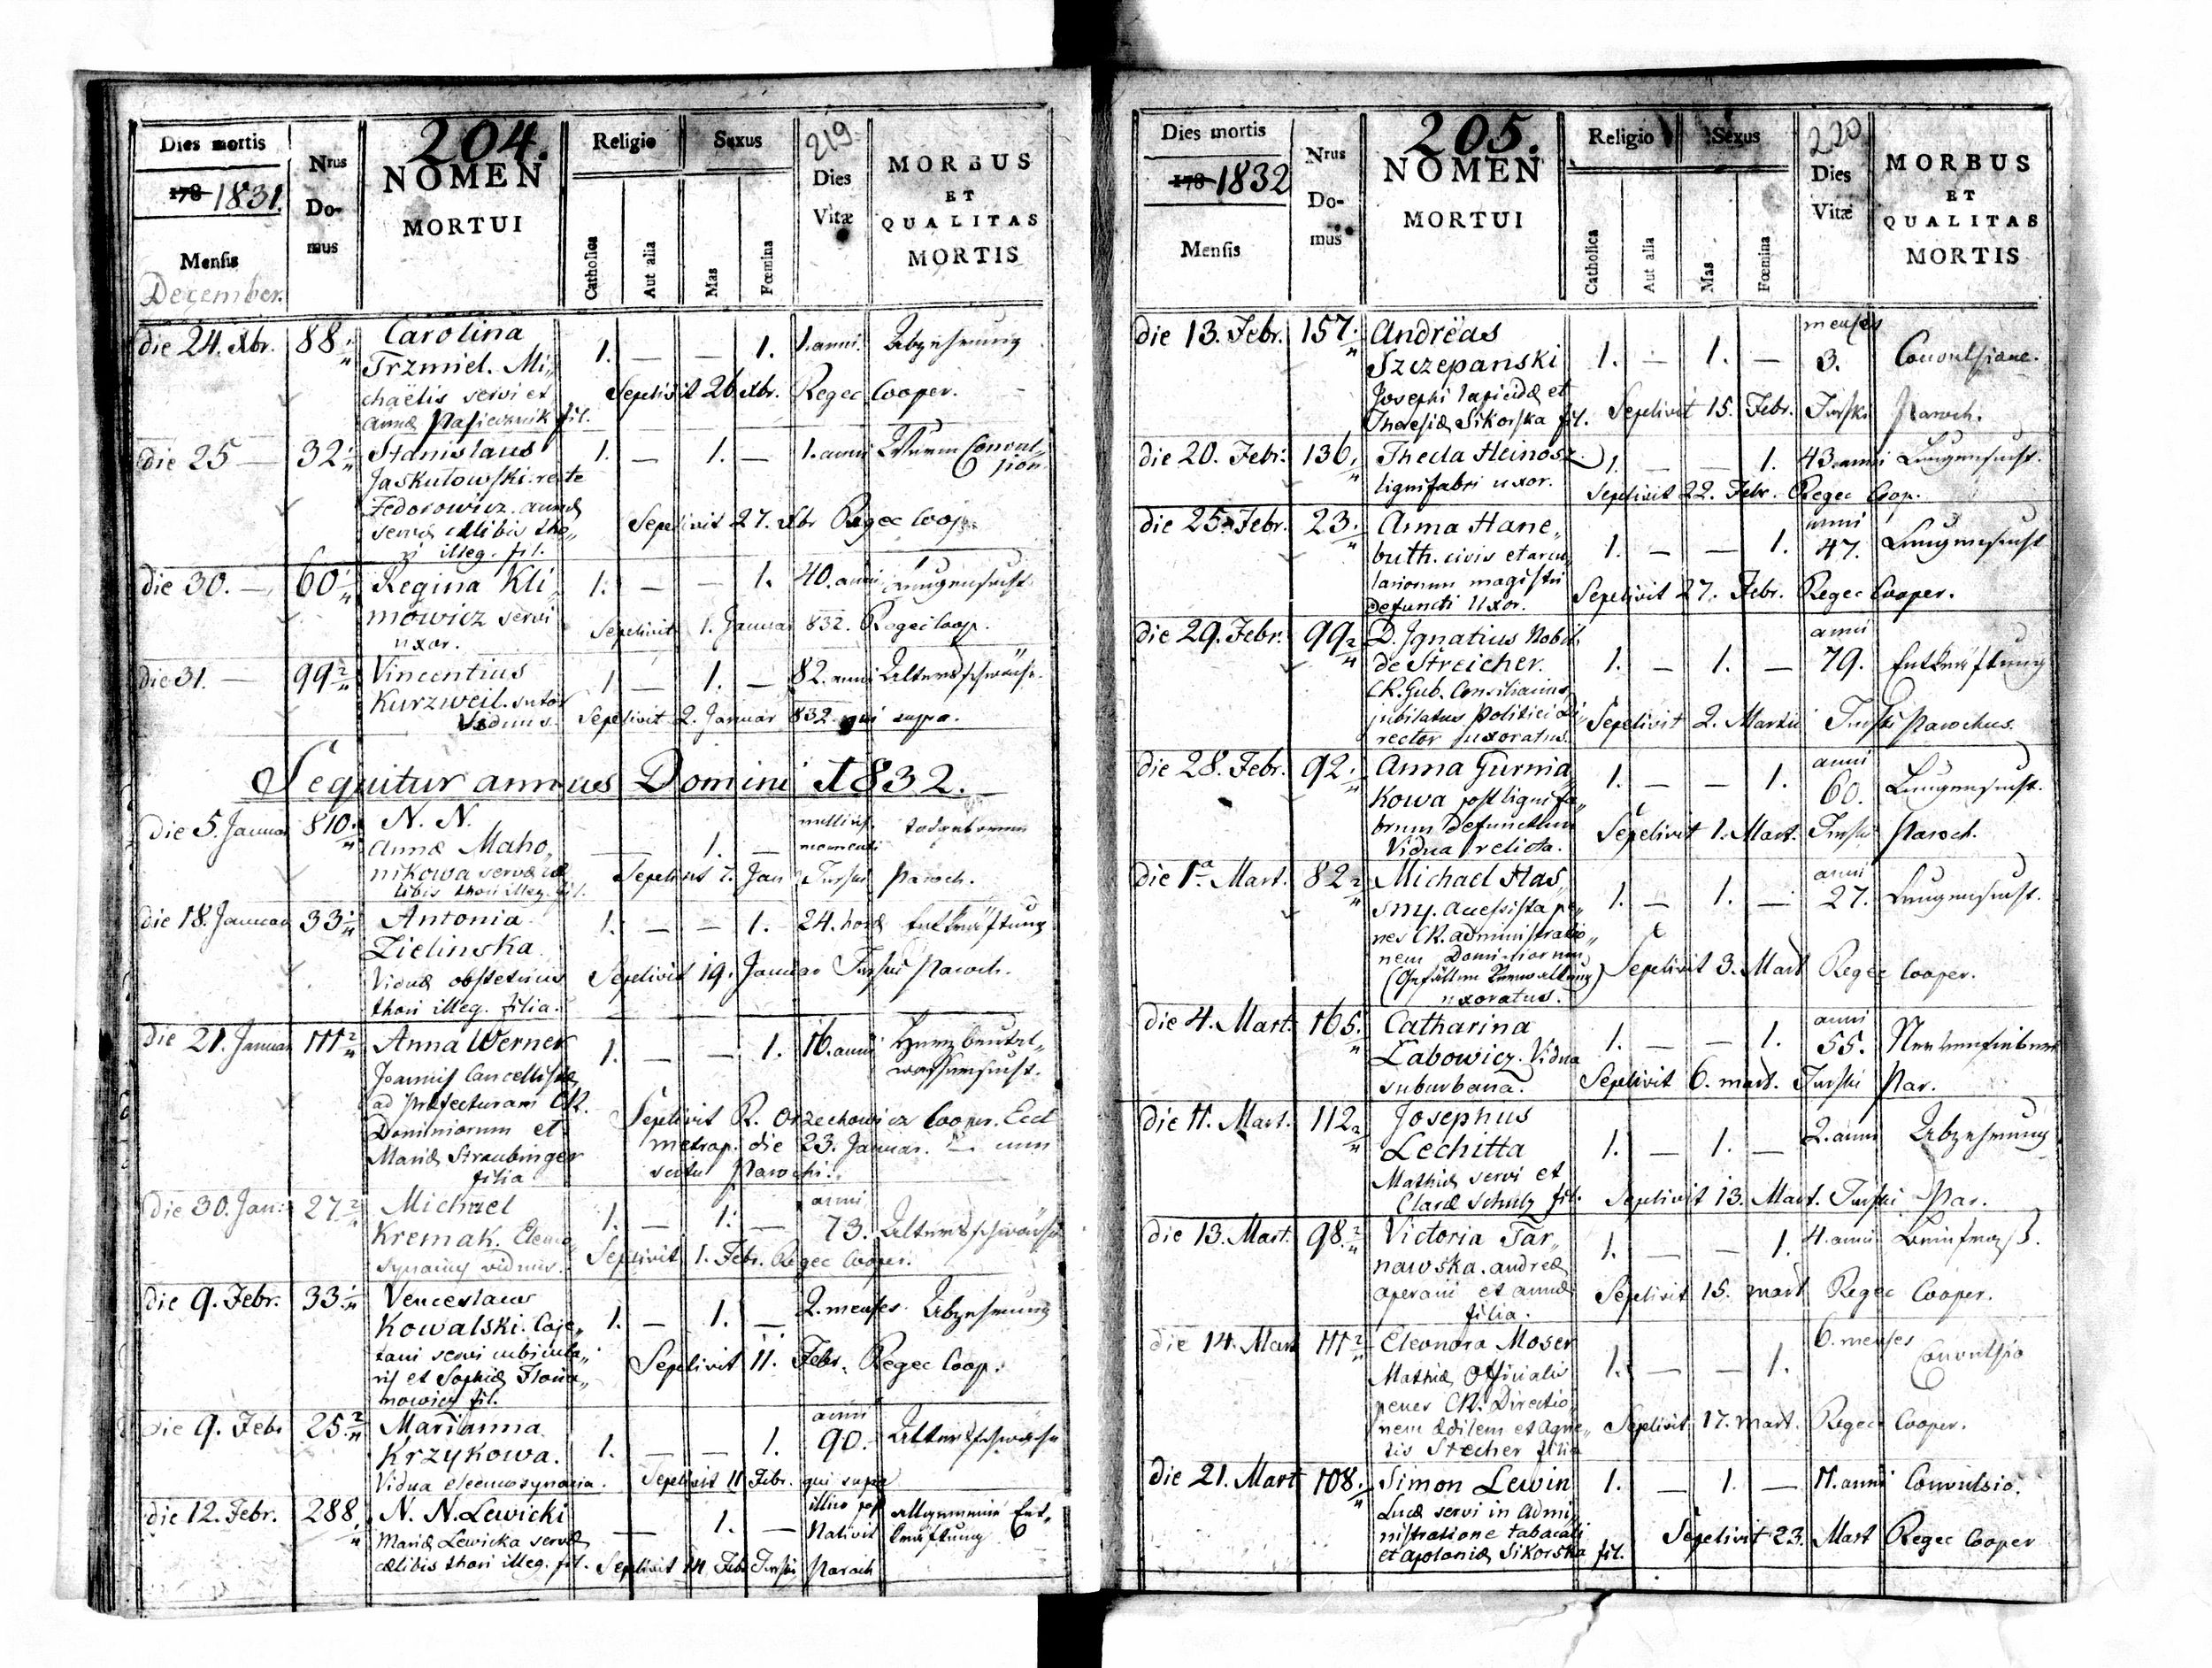 204.
219
Dies mortis
178 1831.
Mensis
December.
Nrus Domus
NOMEN MORTUI
Religio
Catholica
Aut alia
Sexus
Mas
Fœmina
Dies Vitæ
MORBUS ET QUALITAS MORTIS
die 24. Xbr. 88 Carolina 1. — — 1. 1. anni. Abzehrung
Trzmiel. Mi„
chaëlis servi et Sepelivit 26 Xbr. Regec Cooper.
Annæ Pasiecznik fil.
die 25 — 32 Stanislaus 1. — 1. — 1. anni Wurm Convul„
Jaskulowski. recte sion
Fedorowicz. Annæ
servæ cælibis tho„ Sepelivit 27. Xbr Regec Coop.
ri illeg. fil.
die 30. — 60 Regina Kli„ 1. — — 1. 40. anni Lungensucht
mowicz servi Sepelivit 1. Januar 832. Regec Coop.
uxor.
die 31. — 99 Vincentius 1. — 1. — 82. anni Altersschwäche.
Kurzweil. sutor
Viduus. Sepelivit 2. Januar 832. qui supra.
Sequitur annus Domini 1832.
die 5. Januar 810. N. N. — 1. — nullius momenti todgeboren
Annæ Maho„
nikowa servæ cæ Sepelivit 7. Jan Turski Paroch.
libis thori illeg. fil.
die 18. Januar 33 Antonia 1. — — 1. 24. horæ Entkräftung
Zielinska.
Viduæ obstetricis Sepelivit 19. Januar Turski Paroch.
thori illeg. filia.
die 21. Januar 111 Anna Werner 1. — — 1. 16. anni Herzbeutel„
Joannis Cancellistæ wassersucht.
ad Præfecturam CR.
Dominiorum et Sepelivit R. Orzechowicz Cooper. Eccl
Mariæ Straubinger metrop. die 23. Januar.
filia Parochi.
die 30. Jan: 27 Michael 1. — 1. — anni 73. Altersschwäche
Kremak. Eleemo„
synarius viduus. Sepelivit 1. Febr. Regec Cooper.
die 9. Febr. 33 Venceslaus 1. — 1. — 2. menses. Abzehrung
Kowalski. Caje„
tani servi cubicula„ Sepelivit 11. Febr. Regec Coop.
ris et Sophiæ Floria„
nowicz fil.
die 9. Febr 25 Marianna 1. — — 1. anni 90. Altersschwäche
Krzykowa.
Vidua eleemosynaria. Sepelivit 11 Febr. qui supra
die 12. Febr. 288. N. N. Lewicki — 1. — illico post Nativit allgemeine Ent„
Mariæ Lewicka servæ kräftung
cælibis thori illeg. fil. Sepelivit 14 Feb Turski Paroch
205.
220
Dies mortis
178 1832
Mensis
Nrus Domus
NOMEN MORTUI
Religio
Catholica
Aut alia
Sexus
Mas
Fœmina
Dies Vitæ
MORBUS ET QUALITAS MORTIS
die 13. Febr. 157. Andrëas 1. — 1. — menses 3. Convulsione.
Szczepanski
Josephi lapicidæ et Sepelivit 15. Febr. Turski Paroch.
Theresiæ Sikorska fil.
die 20. Febr: 136. Thecla Heinosz 1. — — 1. 43. anni Lungensucht.
lignifabri uxor. Sepelivit 22. Febr. Regec Coop.
die 25. Febr. 23. Anna Hane„ 1. — — 1. anni 47. Lungensucht
buth. civis et arcu„
lariorum magistri Sepelivit 27. Febr. Regec Cooper.
defuncti Uxor.
die 29. Febr. 99 D. Ignatius Nobil. 1. — 1. — anni 79. Entkräftung
de Streicher.
CR. Gub. Consiliarius
jubilatus Politiei Di„ Sepelivit 2. Martii Turski Parochus.
rector uxoratus.
die 28. Febr. 92. Anna Gurnia„ 1. — — 1. anni 60. Lungensucht.
kowa post lignifa„
brum defunctum Sepelivit 1. Mart. Turski Paroch.
Vidua relicta.
die 1a Mart. 82 Michael Has„ 1. — 1. — anni 27. Lungensucht.
sny. Accessista pe„
nes CR. administratio„
nem Dominiorum
(Gefällen Verwaltung) Sepelivit 3. Mart Regec Cooper.
uxoratus.
die 4. Mart. 165. Catharina 1. — — 1. anni 55. Nervenfieber
Labowicz. Vidua
suburbana. Sepelivit 6. mart. Turski Par.
die 11. Mart. 112 Josephus 1. — 1. — 2. anni Abzehrung
Lechitta
Mathiæ servi et
Claræ Schulz fil. Sepelivit 13. Mart. Turski Par.
die 13. Mart. 98. Victoria Tar„ 1. — — 1. 4. anni Beinfraß.
nawska. Andreæ
operarii et Annæ Sepelivit 15. mart Regec Cooper.
filia.
die 14. Mart 111 Eleonora Moser 1. — — 1. 6. menses Convulsio
Mathiæ Officialis
penes CR. Directio„
nem ædilem et Agne„ Sepelivit 17. mart. Regec Cooper.
tis Stecher filia
die 21. Mart 108. Simon Lewin 1. — 1. — 11. anni Convulsio.
Lucæ servi in Admi„
nistratione tabacali Sepelivit 23. Mart Regec Cooper
et Apoloniæ Sikorska fil.